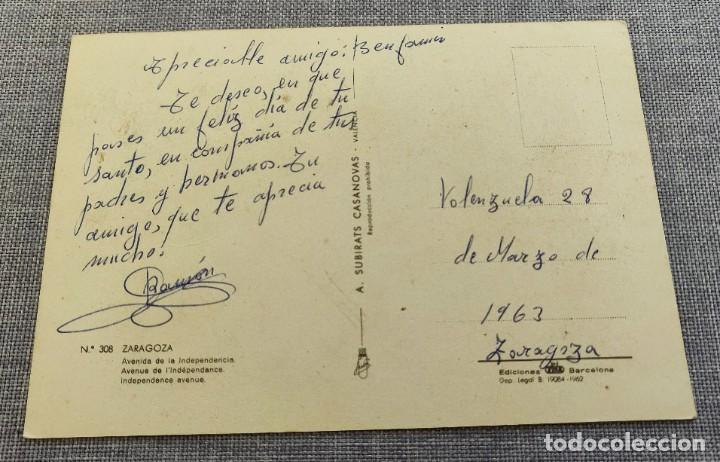 Apreciable amigo: Benjamin
Te deseo, en que
pases un feliz día de tu
santo, en compañía de tus
padres y hermanos. Tu
amigo, que te aprecia
mucho.
Ramón
Nº 308 ZARAGOZA
Avenida de la Independencia.
Avenue de l'Indépendance.
Independence avenue.
A. SUBIRATS CASANOVAS - VALENCIA
Reproducción prohibida
Valenzuela 28
de Marzo de
1963
Zaragoza
Ediciones Barcelona
Dep. Legal B. 19084-1962
todocoleccion
todocoleccion.net